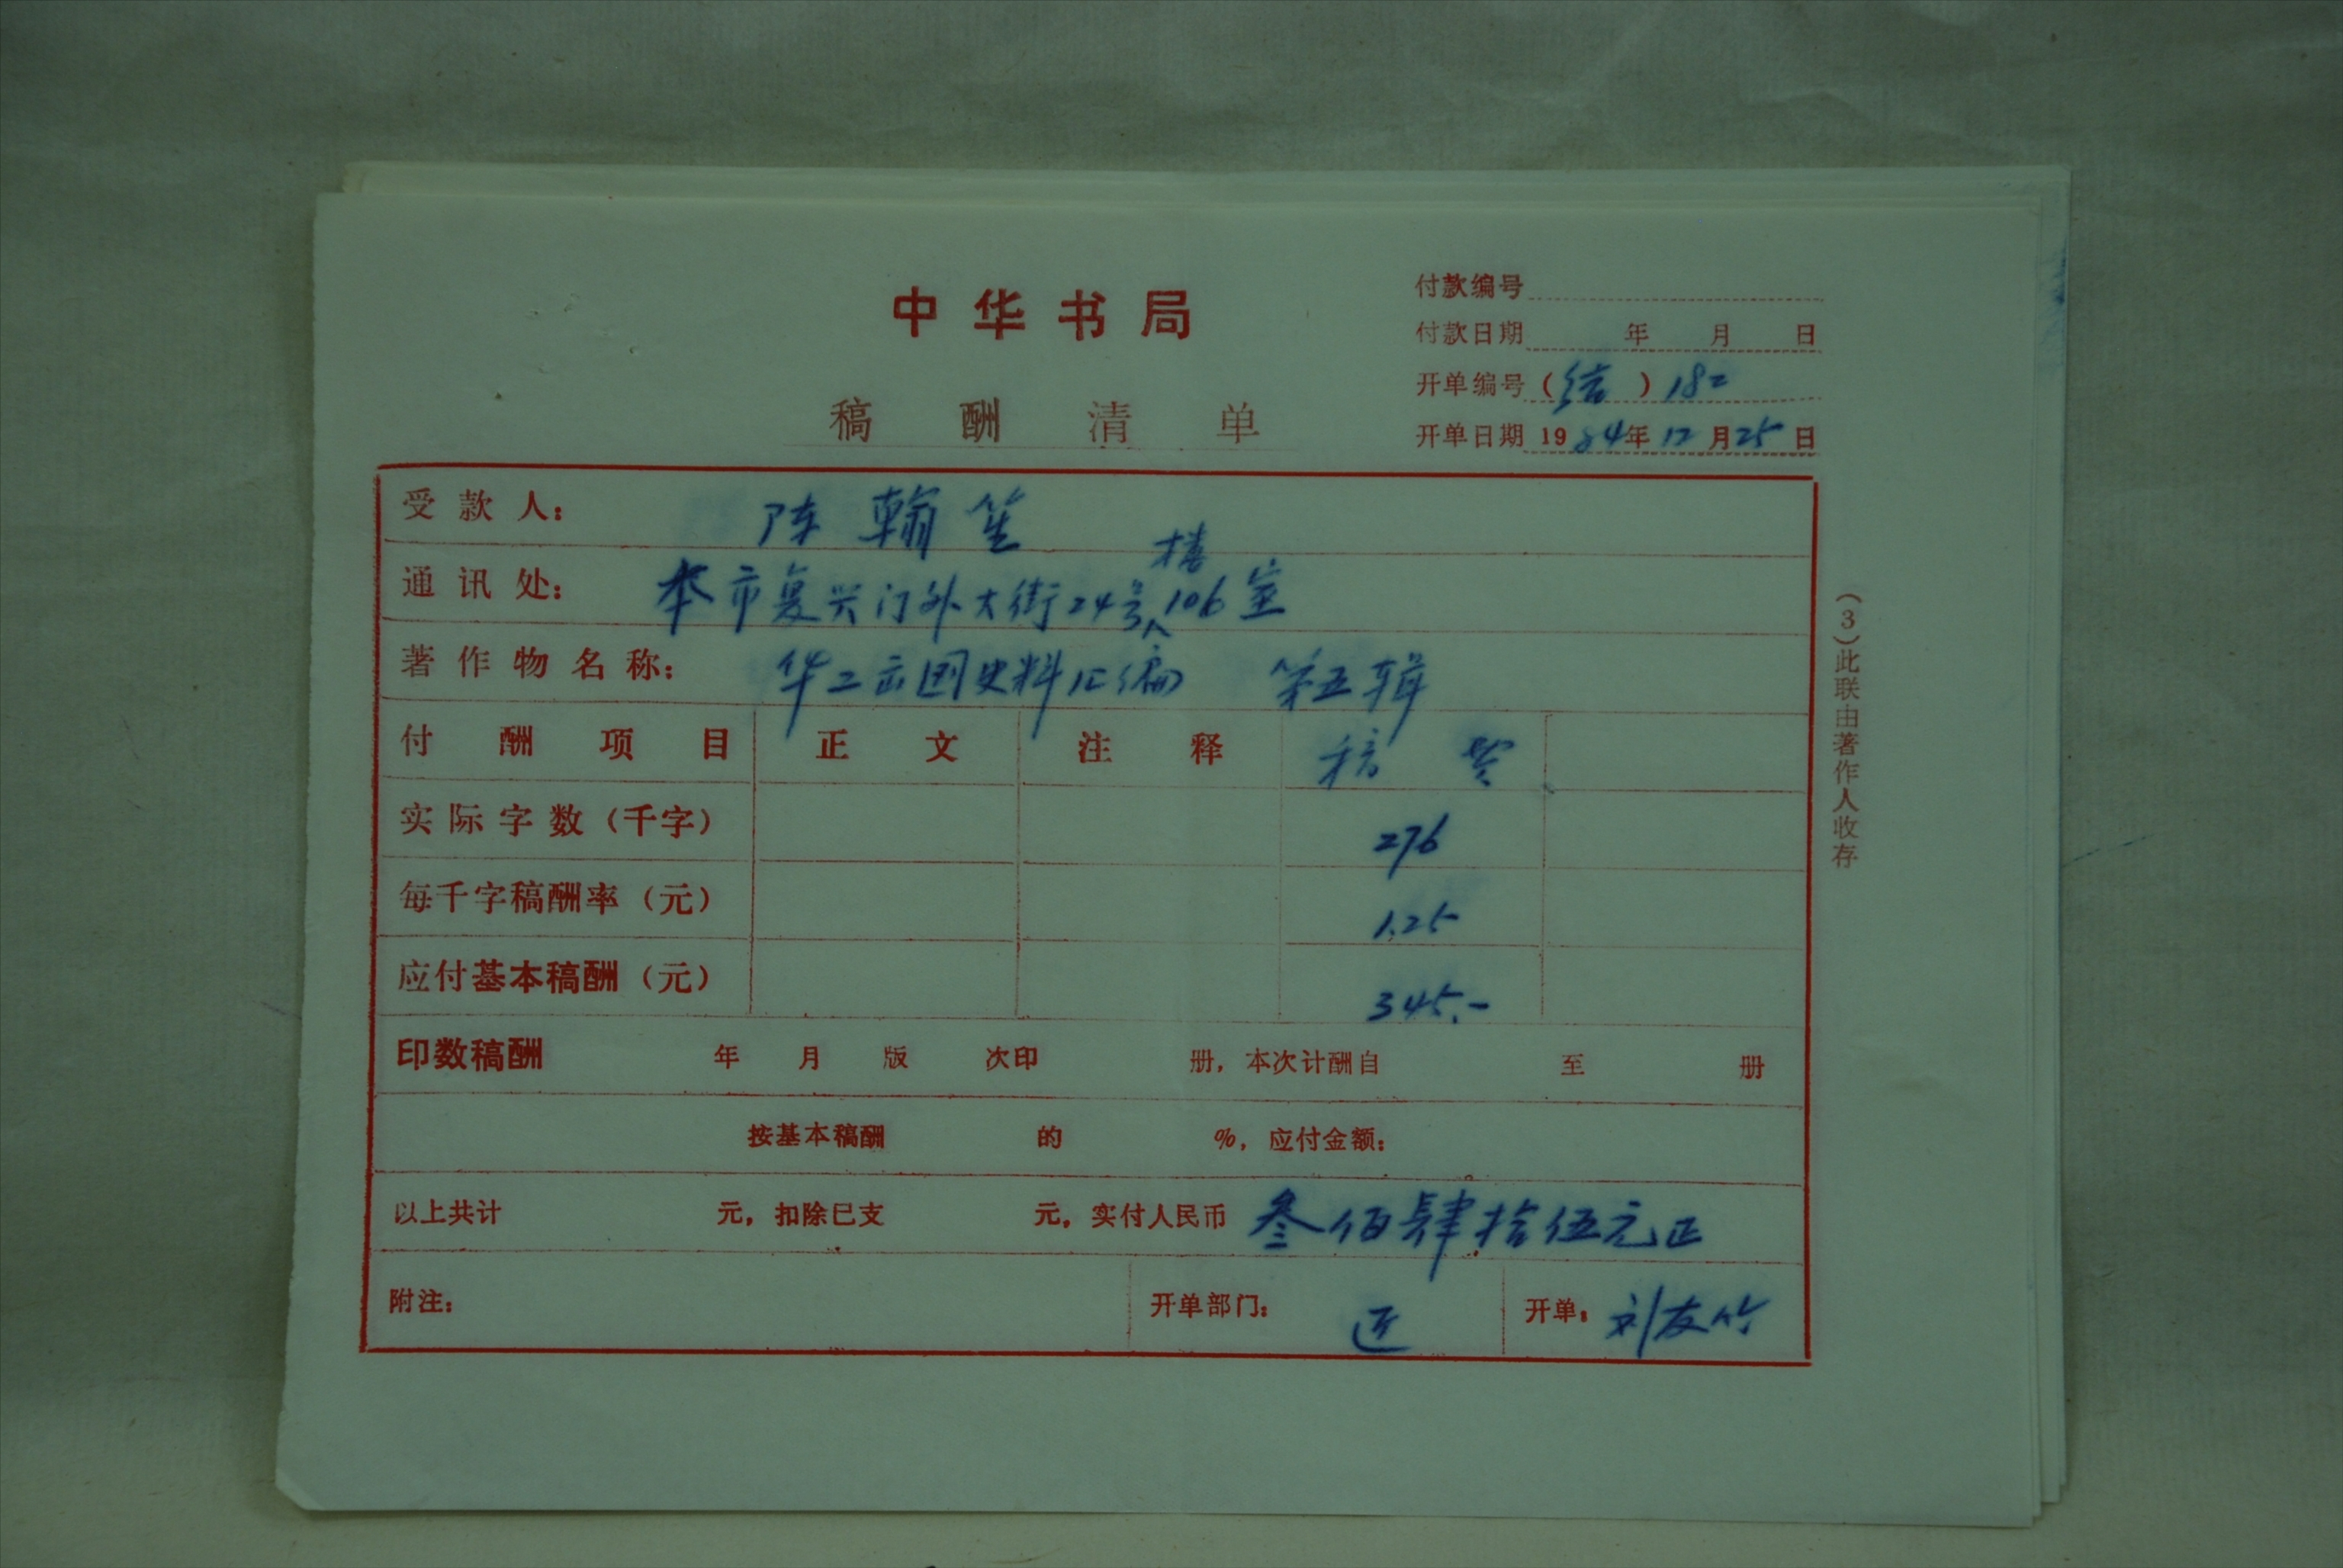 中华书局
稿酬清单
付款编号
付款日期 年 月 日
开单编号(结)182
开单日期 1984年12月25日
受款人: 陈翰笙
通讯处: 本市复兴门外大街24号楼106室
著作物名称: 华工出国史料汇编 第五辑
付酬项目 正文 注释 稿费
实际字数(千字) 276
每千字稿酬率(元) 1.25
应付基本稿酬(元) 345.-
印数稿酬 年 月 版 次印 册,本次计酬自 至 册
按基本稿酬 的 %,应付金额:
以上共计 元,扣除已支 元,实付人民币 叁佰肆拾伍元正
附注: 开单部门: 近 开单: 刘友竹
(3)此联由著作人收存